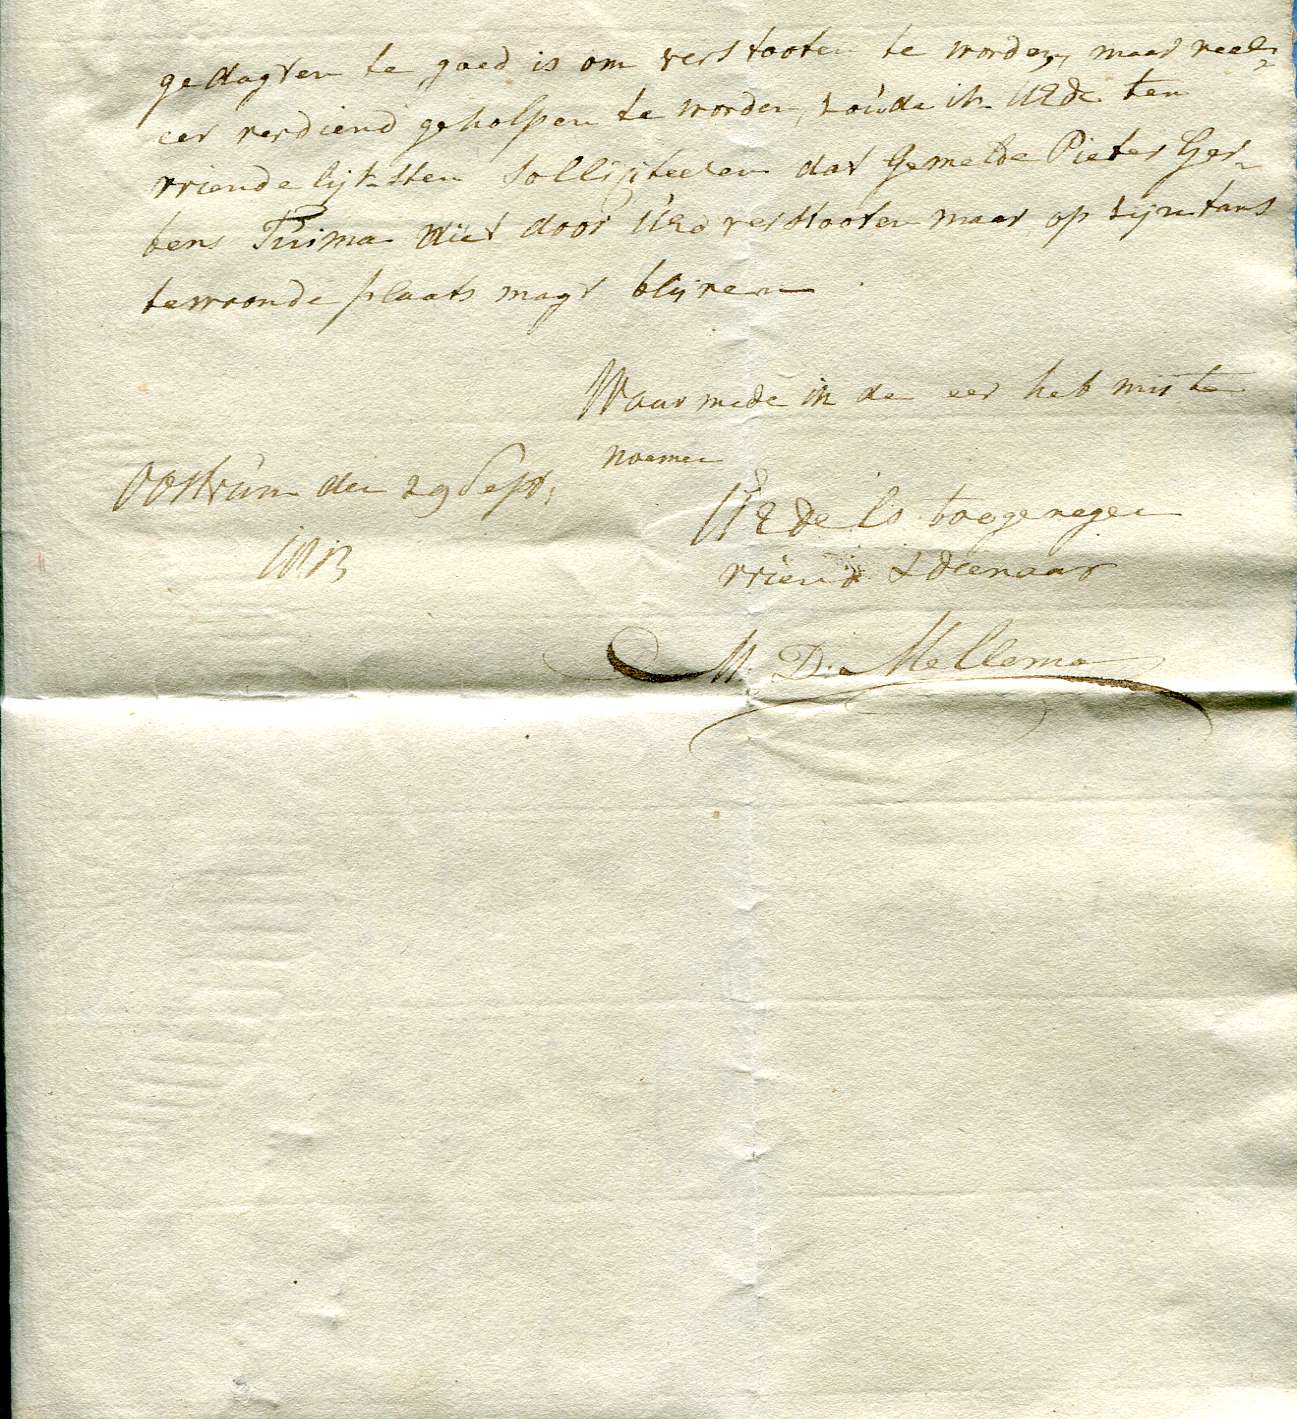 gedagten te goed is om verstooten te worden, maar veel
eer verdiend geholpen te worden, zoude ik UEde ten
vriendelijksten solliciteeren dat gemelde Pieter Ger-
bens Tuima niet door UEd verstooten maar op zijn tans
bewoonde plaats magt blijven
Waarmede ik de eer heb mij te
noemen
Oostrum den 29 Sept,
UEdels toegenegen
vriend & dienaar
M. D. Mellema